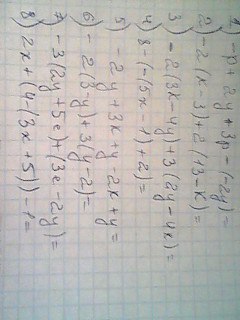 1) -p + 2y + 3p - (-2y) =
2) -2(k-3)+2(13-k)=
3) -2(3x-4y)+3(2y-4x)=
4) 8-(-(5x-1)+2)=
5) -2y+3x+y-2x+y=
6) -2(3y)+3(y-2)=
7) -3(2y+5e)+(3e-2y)=
8) 2x+(4-(3x+5))-1=